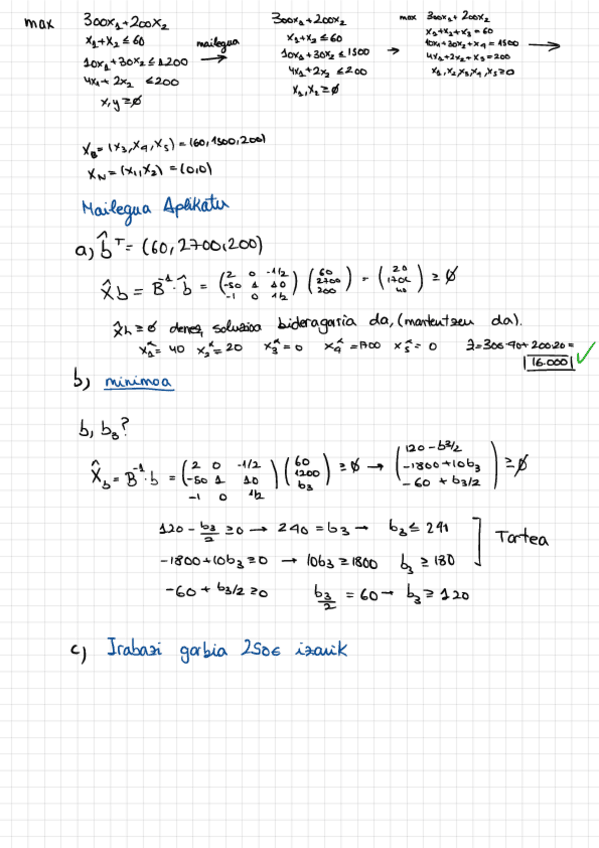 max 300x₁+200x₂
x₁+x₂ ≤ 60
10x₁+30x₂ ≤ 1200
4x₁+2x₂ ≤ 200
x,y ≥ ∅
mailegua →
300x₁+200x₂
x₁+x₂ ≤ 60
10x₁+30x₂ ≤ 1500
4x₁+2x₂ ≤ 200
x₁,x₂ ≥ ∅
→
max 300x₁+200x₂
x₁+x₂+x₃ = 60
10x₁+30x₂+x₄ = 1500
4x₁+2x₂+x₅ = 200
x₁,x₂,x₃,x₄,x₅ ≥ 0
→
X_B = (x₃,x₄,x₅) = (60,1500,200)
X_N = (x₁,x₂) = (0,0)
Mailegua Aplikatu
a) b̂ᵀ = (60, 2700, 200)
X̂b = B⁻¹·b̂ = (2 0 -1/2; -50 1 10; -1 0 1/2) (60; 2700; 200) = (20; 1700; 40) ≥ ∅
x̂b ≥ ∅ denez, soluzioa bideragarria da, (mantentzen da).
x₁* = 40 x₂* = 20 x₃* = 0 x₄* = 1700 x₅* = 0 z = 300·40 + 200·20 =
16.000 ✓
b) minimoa
b, b₃?
X̂b = B⁻¹·b = (2 0 -1/2; -50 1 10; -1 0 1/2) (60; 1200; b₃) ≥ ∅ → (120 - b₃/2; -1800 + 10b₃; -60 + b₃/2) ≥ ∅
120 - b₃/2 ≥ 0 → 240 = b₃ → b₃ ≤ 241
-1800 + 10b₃ ≥ 0 → 10b₃ ≥ 1800 b₃ ≥ 180
Tartea
-60 + b₃/2 ≥ 0 b₃/2 = 60 → b₃ ≥ 120
c) Irabazi garbia 250€ izanik